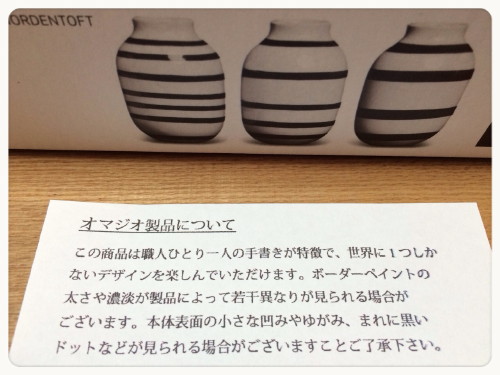 ORDENTOFT
オマジオ製品について
この商品は職人ひとり一人の手書きが特徴で、世界に1つしか
ないデザインを楽しんでいただけます。ボーダーペイントの
太さや濃淡が製品によって若干異なりが見られる場合が
ございます。本体表面の小さな凹みやゆがみ、まれに黒い
ドットなどが見られる場合がございますことご了承下さい。